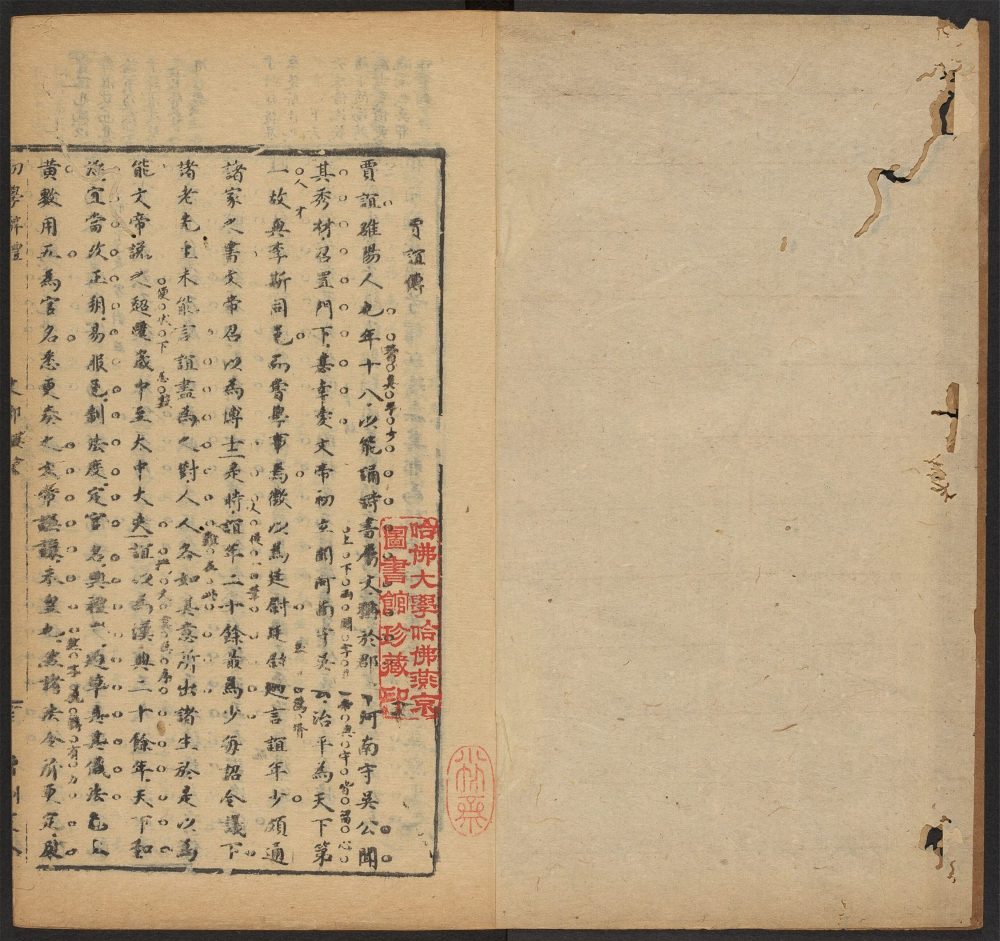 賈誼傳
賈誼雒陽人也年十八以能誦詩書屬文稱於郡河南守吳公聞
其秀材召置門下甚幸愛文帝初立聞河南守吳公治平為天下第
一故與李斯同邑而嘗學事焉徵以為廷尉廷尉廼言誼年少頗通
諸家之書文帝召以為博士是時誼年二十餘最為少每詔令議下
諸老先生未能言誼盡為之對人人各如其意所出諸生於是以為
能文帝說之超遷歲中至太中大夫誼以為漢興二十餘年天下和
洽宜當改正朔易服色制法度定官名興禮樂廼草具其儀法色上
黃數用五為官名悉更奏之文帝謙讓未皇也然諸法令所更定及
哈佛大學哈佛燕京
圖書館珍藏印